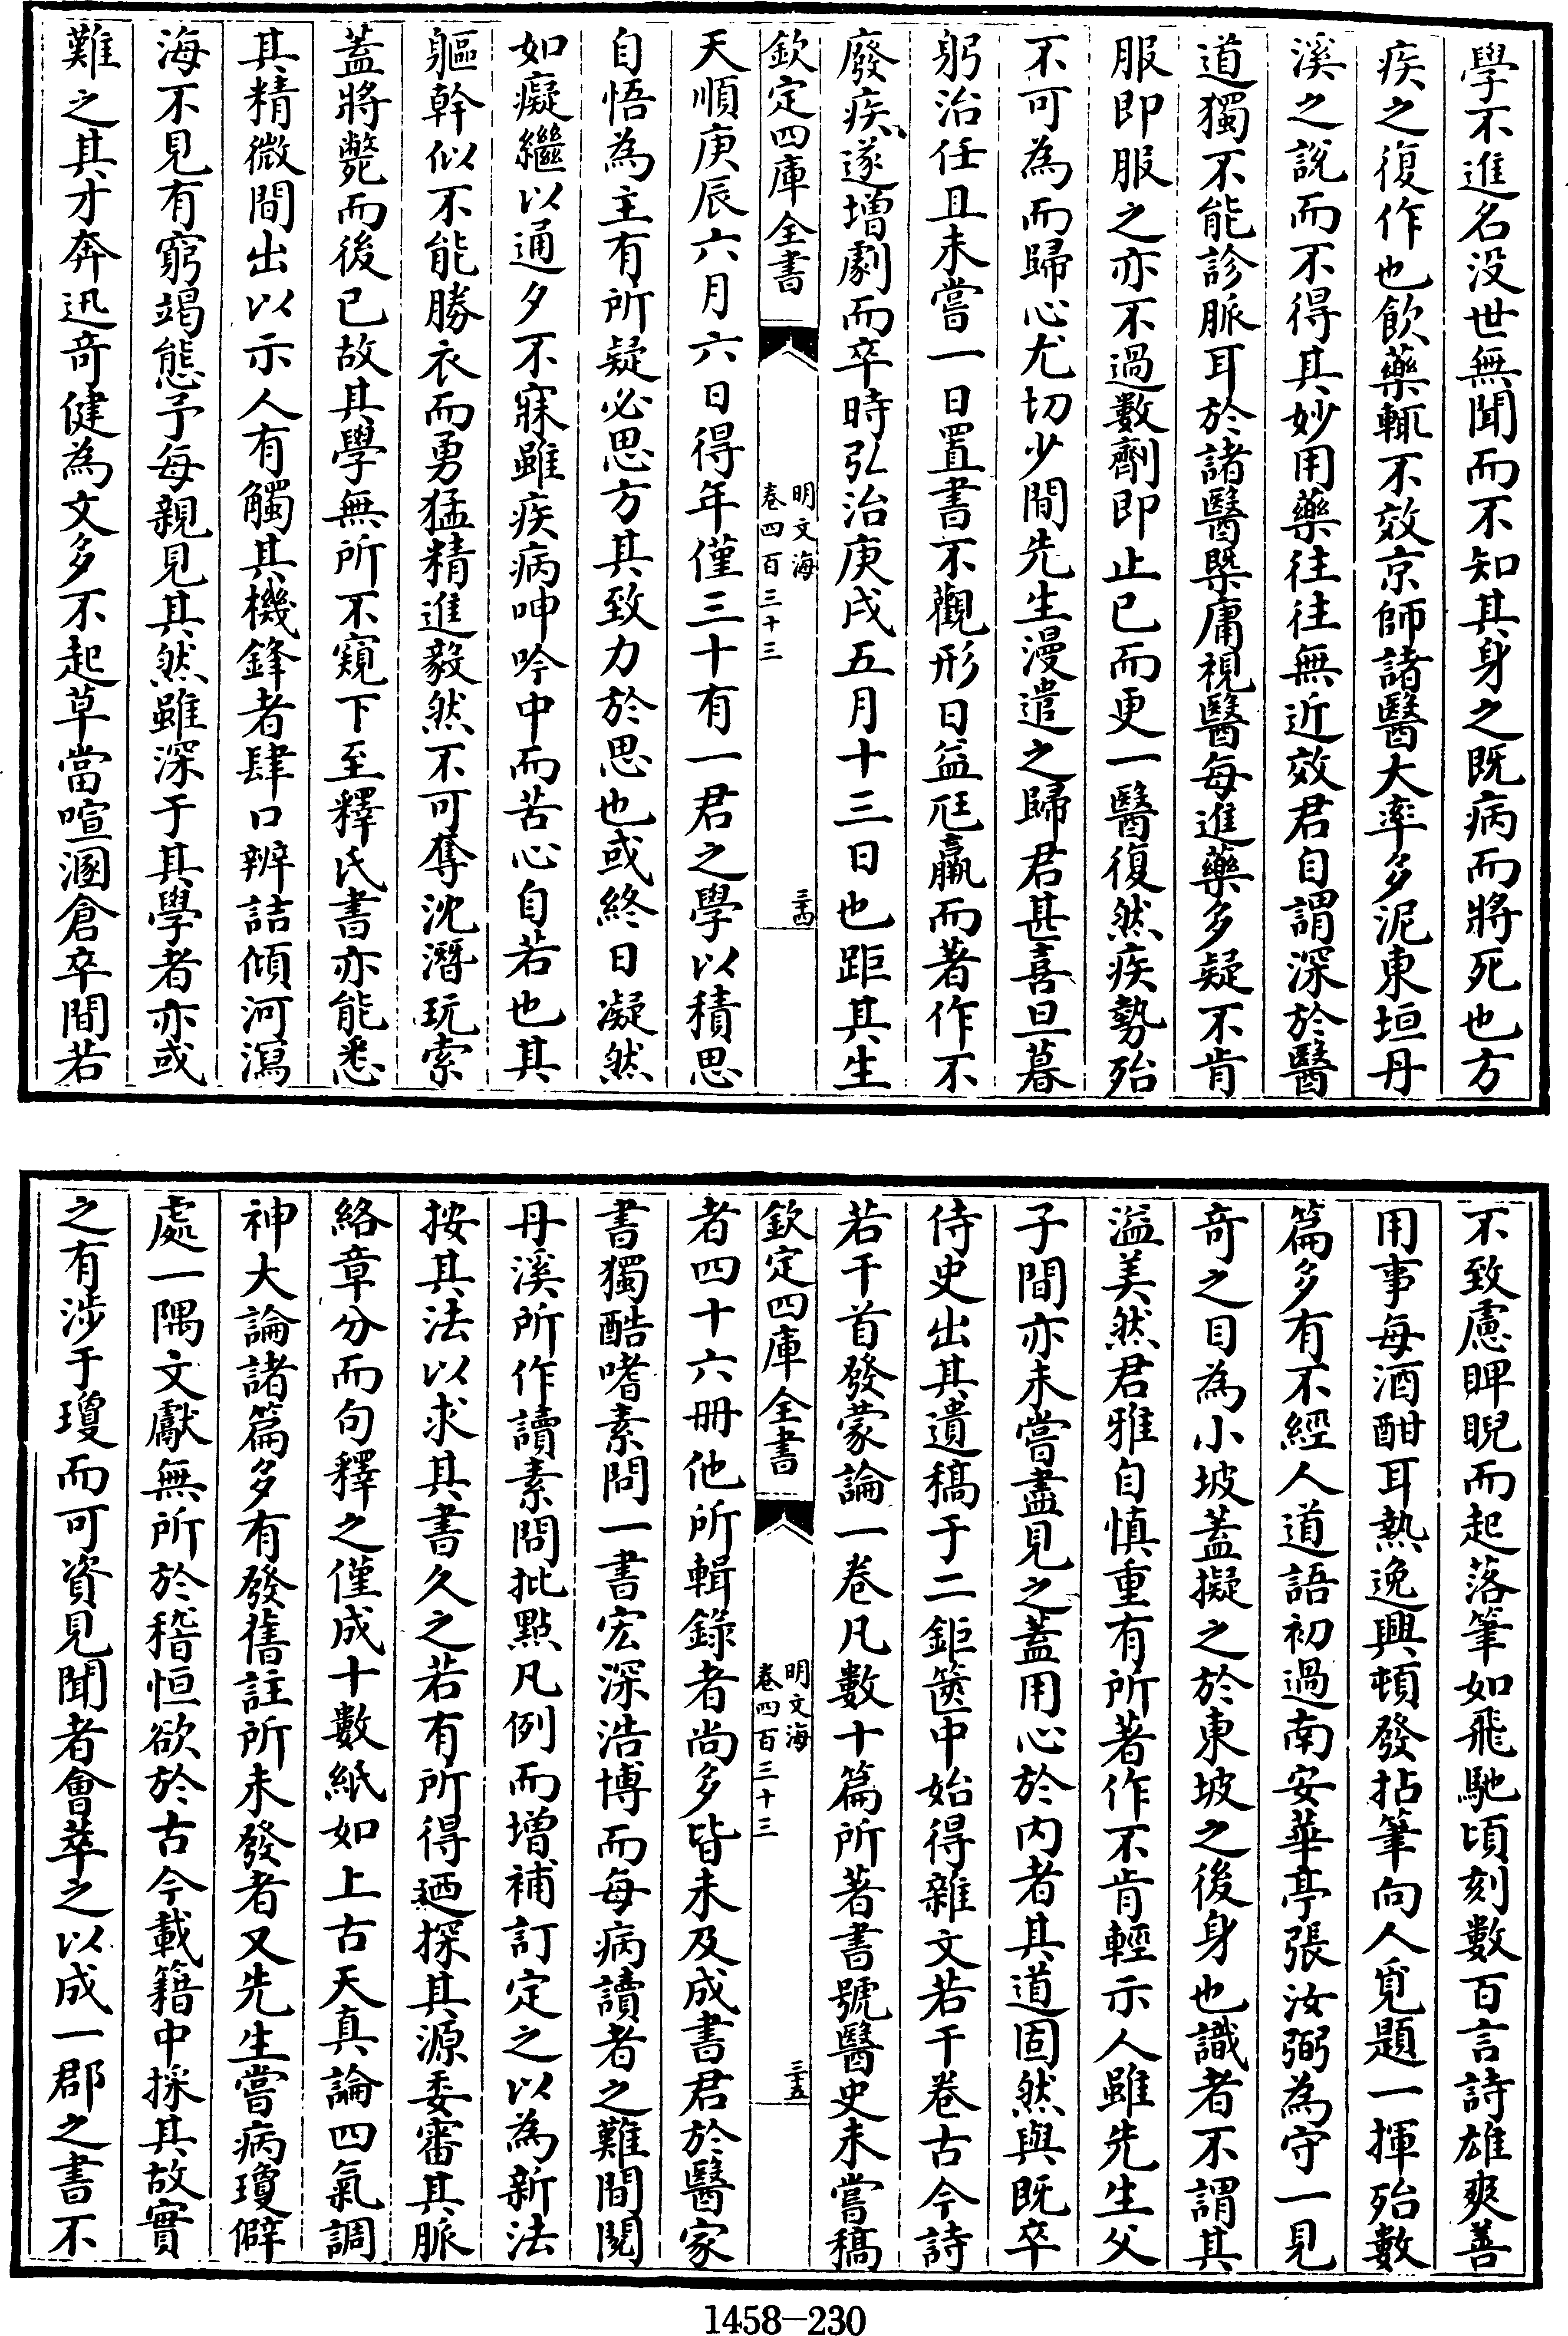 學不進名没世無聞而不知其身之既病而將死也方
疾之復作也飲藥輒不效京師諸醫大率多泥東垣丹
溪之說而不得其妙用藥往往無近效君自謂深於醫
道獨不能診脈耳於諸醫槩庸視醫每進藥多疑不肯
服即服之亦不過數劑即止已而更一醫復然疾勢殆
不可為而歸心尤切少間先生漫遣之歸君甚喜旦暮
躬治任且未嘗一日置書不觀形日益尫羸而著作不
廢疾遂增劇而卒時弘治庚戌五月十三日也距其生
欽定四庫全書
明文海
卷四百三十三
三十四
天順庚辰六月六日得年僅三十有一君之學以積思
自悟為主有所疑必思方其致力於思也或終日凝然
如癡繼以通夕不寐雖疾病呻吟中而苦心自若也其
軀幹似不能勝衣而勇猛精進毅然不可奪沈潛玩索
蓋將斃而後已故其學無所不窺下至釋氏書亦能悉
其精微間出以示人有觸其機鋒者肆口辨詰傾河瀉
海不見有窮竭態予每親見其然雖深于其學者亦或
難之其才奔迅奇健為文多不起草當喧溷倉卒間若
不致慮睥睨而起落筆如飛馳頃刻數百言詩雄爽善
用事每酒酣耳熱逸興頓發拈筆向人覓題一揮殆數
篇多有不經人道語初過南安華亭張汝弼為守一見
奇之目為小坡蓋擬之於東坡之後身也識者不謂其
溢美然君雅自慎重有所著作不肯輕示人雖先生父
子間亦未嘗盡見之蓋用心於内者其道固然與既卒
侍史出其遺稿于二鉅篋中始得雜文若干卷古今詩
若干首發蒙論一卷凡數十篇所著書號醫史未嘗稿
欽定四庫全書
明文海
卷四百三十三
三十五
者四十六冊他所輯錄者尚多皆未及成書君於醫家
書獨酷嗜素問一書宏深浩博而每病讀者之難間閱
丹溪所作讀素問批點凡例而增補訂定之以為新法
按其法以求其書久之若有所得迺探其源委審其脈
絡章分而句釋之僅成十數紙如上古天真論四氣調
神大論諸篇多有發舊註所未發者又先生嘗病瓊僻
處一隅文獻無所於稽恒欲於古今載籍中採其故實
之有涉于瓊而可資見聞者會萃之以成一郡之書不
1458-230